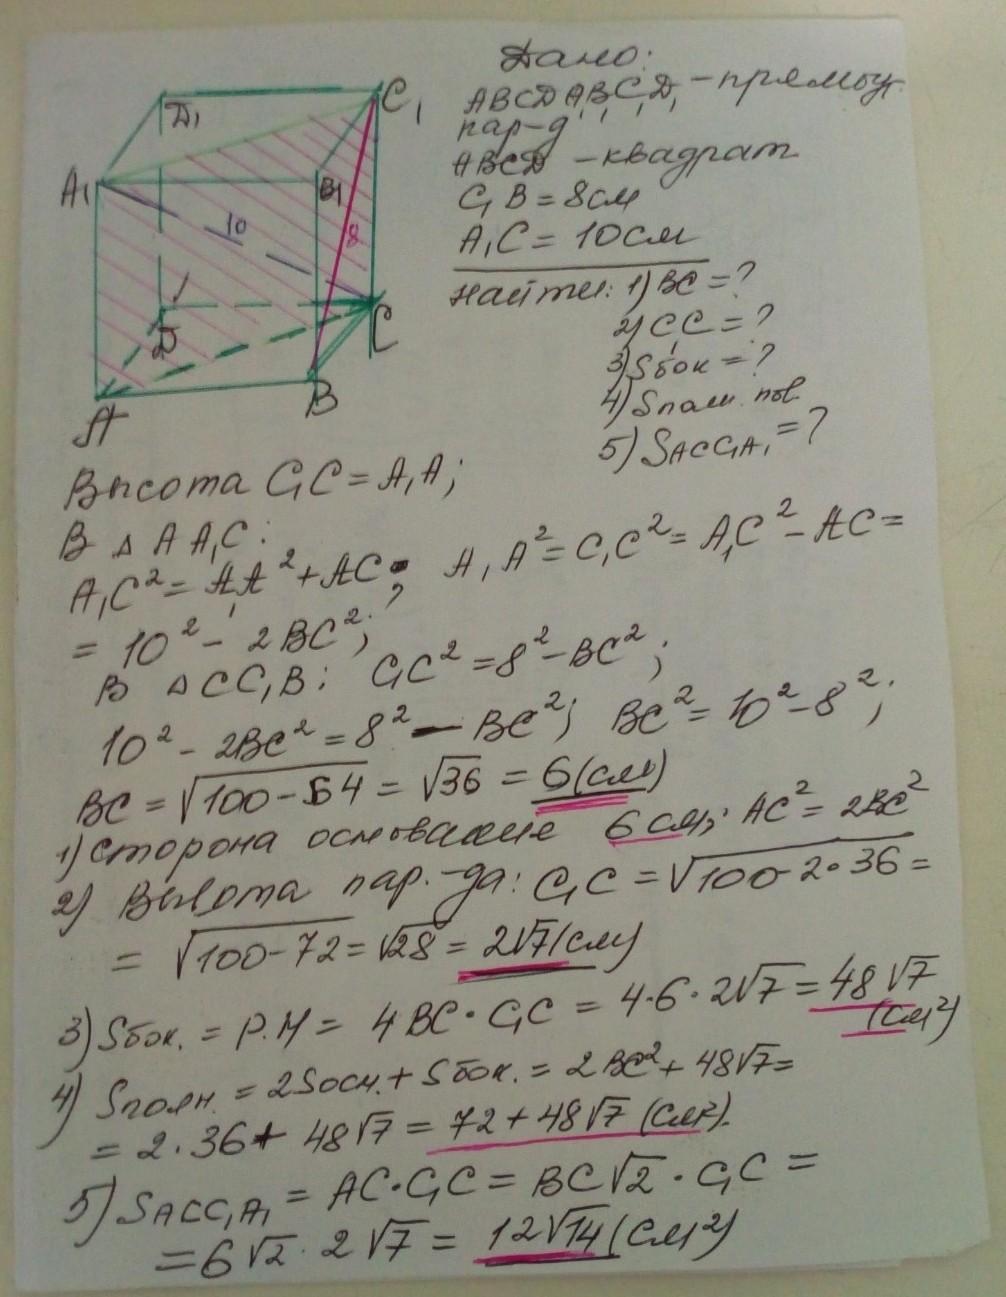 Дано:
ABCDA₁B₁C₁D₁ - прямоуг.
пар-д
ABCD - квадрат
C₁B = 8см
A₁C = 10см
Найти: 1) BC = ?
2) C₁C = ?
3) Sбок = ?
4) Sполн. пов.
5) SACC₁A₁ = ?
D₁
C₁
A₁
B₁
10
8
D
C
B
A
Высота C₁C = A₁A;
В △ AA₁C:
A₁C² = A₁A² + AC; A₁A² = C₁C² = A₁C² - AC =
= 10² - 2BC²;
В △CC₁B: C₁C² = 8² - BC²;
10² - 2BC² = 8² - BC²; BC² = 10² - 8²;
BC = √100 - 64 = √36 = 6 (см)
1) Сторона основание 6 см; AC² = 2BC²
2) Высота пар.-да: C₁C = √100 - 2·36 =
= √100 - 72 = √28 = 2√7 (см)
3) Sбок. = P·H = 4BC·C₁C = 4·6·2√7 = 48√7
(см²)
4) Sполн. = 2Sосн. + Sбок. = 2BC² + 48√7 =
= 2·36 + 48√7 = 72 + 48√7 (см²).
5) SACC₁A₁ = AC·C₁C = BC√2 · C₁C =
= 6√2 · 2√7 = 12√14 (см²)